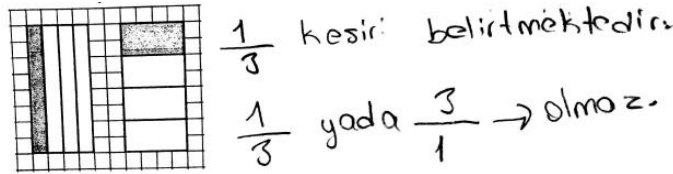 1/3 kesiri belirtmektedir.
1/3 yada 3/1 → olmaz.